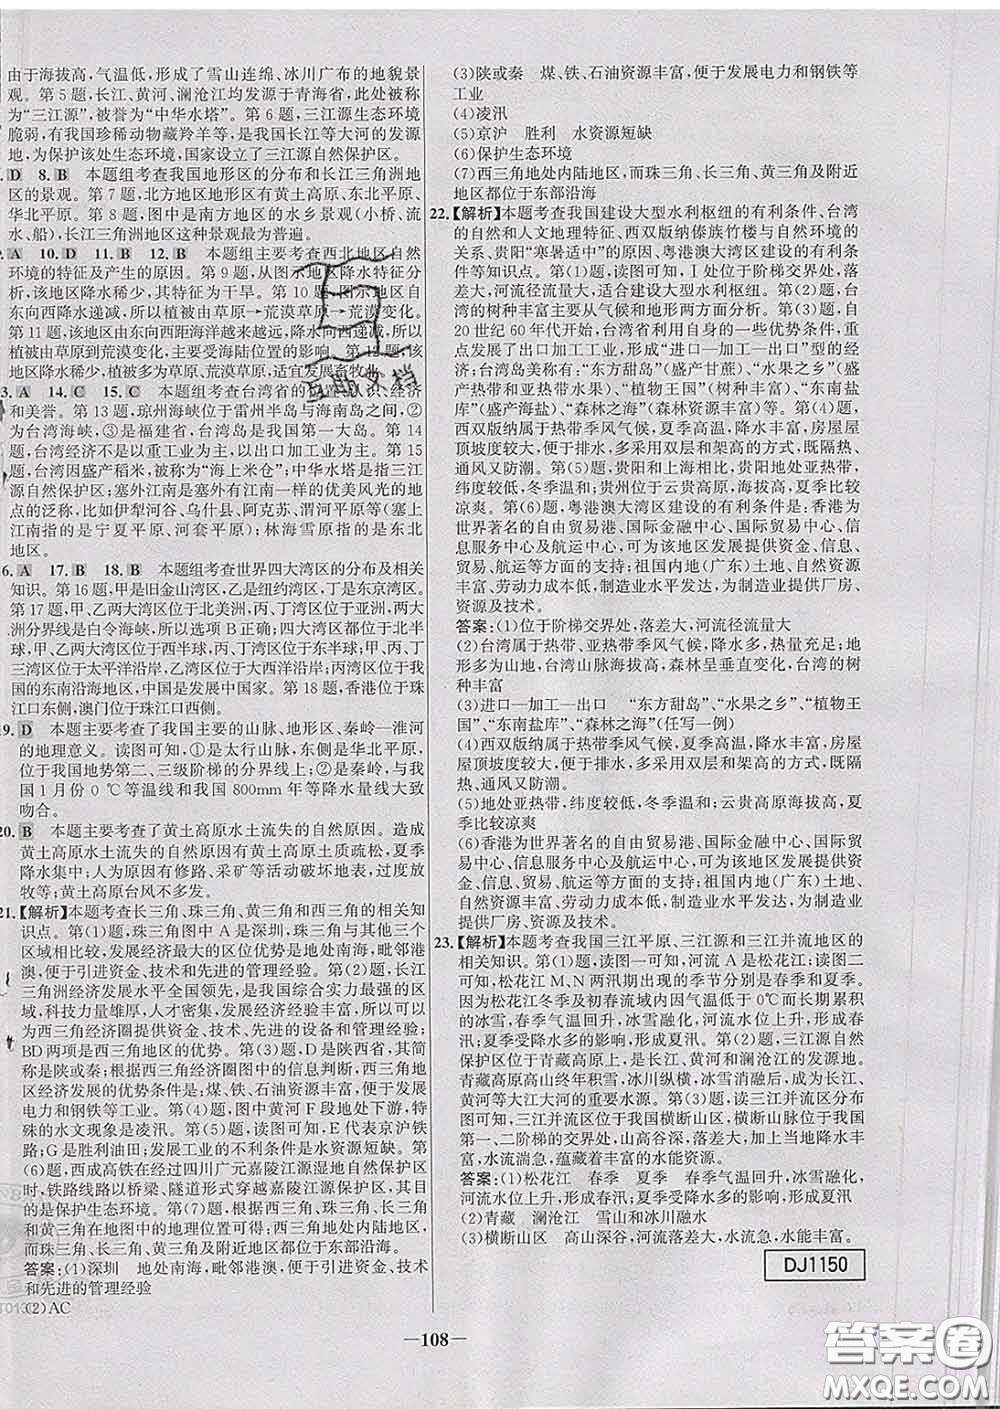 由于海拔高,气温低,形成了雪山连绵、冰川广布的地貌景
观。第5题,长江、黄河、澜沧江均发源于青海省,此被称
为“三江源”,被誉为“中华水塔”。第6题,三江源生态环境
脆弱,有我国珍稀动物藏羚羊等,是我国长江等大河的发源
地,为保护该处生态环境,国家设立了三江源自然保护区。
.D 8.B 本题组考查我国地形区的分布和长江三角洲地
区的景观。第7题,北方地区地形区有黄土高原、东北平原、
华北平原。第8题,图中是南方地区的水乡景观(小桥、流
水、船),长江三角洲地区这种景观最为普遍。
9.A 10.D 11.B 12.B 本题组主要考查西北地区自然
环境的特征及产生的原因。第9题,从图示地区降水特征分
析,该地区降水稀少,其特征为干旱。第10题,图示地区自
东向西降水递减,所以植被由草原→荒漠草原→荒漠变化。
第11题,该地区由东向西距海洋越来越远,降水向西递减,所以
植被由草原到荒漠变化,主要受海陆位置的影响。第12题,
该地降水稀少,植被多为草原、荒漠草原,适宜发展畜牧业。
3.A 14.C 15.C 本题组考查台湾省的位置认识、经济
和美誉。第13题,琼州海峡位于雷州半岛与海南岛之间,②
为台湾海峡,③是福建省,台湾岛是我国第一大岛。第14
题,台湾经济不是以重工业为主,以出口加工业为主。第15
题,台湾因盛产稻米,被称为“海上米仓”;中华水塔是指三江
源自然保护区;塞外江南是指塞外有江南一样的优美风光的
地点的泛称,比如伊犁河谷、乌什县、阿克苏、渭河平原、塞上
江南(上江南是指的是宁夏平原、河套平原);林海雪原指的是东北
地区。
16.A 17.B 18.B 本题组考查世界四大湾区的分布及相
关知识。第16题,甲是旧金山湾区,乙是纽约湾区,丁是东京湾区。
第17题,甲、乙两大湾区位于北美洲,丙、丁湾区位于亚洲,两大
洲分界线是白令海峡,所以选项B正确;四大湾区都位于北半
球,甲、乙两大湾区位于西半球,丙、丁两大湾区位于东半球,
甲湾区位于太平洋沿岸,乙湾区位于大西洋沿岸;丙湾区位于我
国的东南沿海地区,中国是发展中国家。第18题,香港位于珠
江口东侧,澳门位于珠江口西侧。
19.D 本题主要考查了我国主要的山脉、地形区、秦岭—淮河
的地理意义。读图可知,①是太行山脉,东侧是华北平原,
位于我国地势第二、三级阶梯的分界线上;②是秦岭,与我
国1月份0℃等温线和我国800mm年等降水量线大致
吻合。
20.B 本题主要考查了黄土高原水土流失的自然原因。造成
黄土高原水土流失的自然原因有黄土高原土质疏松,夏季
降水集中;人为原因有修路、采矿等活动破坏地表,过度放
牧等;黄土高原台风不多发。
21.【解析】本题考查长三角、珠三角、黄三角和西三角的相关知
识点。第(1)题,珠三角图中A是深圳,珠三角与其他三个
区域相比较,发展经济最大的区位优势是地处南海,毗邻港
澳,便于引进资金、技术和先进的管理经验。第(2)题,长江
三角洲经济发展水平全国领先,是我国综合实力最强的区
域,科技力量雄厚,人才密集,发展经济优势明显,所以可以
为西三角经济圈提供资金、技术、先进的设备和管理经验;
BD两项是西三角地区的优势。第(3)题,D是陕西省,其简
称是陕或秦;根据西三角经济圈图中的信息判断,西三角地
区经济发展的优势条件是:煤、铁、石油资源丰富,便于发展
电力和钢铁等工业。第(4)题,图中黄河F段地处北方,特
殊的水文现象是凌汛。第(5)题,读图可知,E代表京沪铁
路;G是胜利油田;发展工业的不利条件是水资源短缺。第
(6)题,西成高铁在经过四川广元嘉陵江源湿地自然保护区
时,铁路线路以桥梁、隧道形式穿越嘉陵江源保护区,其目的
是保护生态环境。第(7)题,根据西三角、珠三角、长三角和
黄三角在地图中的地理位置可得;西三角地处内陆地区,
而珠三角、长三角、黄三角及附近地区都位于东部沿海。
答案:(1)深圳 地处南海,毗邻港澳,便于引进资金、技术
和先进的管理经验
(2)AC
(3)陕或秦 煤、铁、石油资源丰富,便于发展电力和钢铁等
工业
(4)凌汛
(5)京沪 胜利 水资源短缺
(6)保护生态环境
(7)西三角地处内陆地区,而珠三角、长三角、黄三角及附近
地区都位于东部沿海
22.【解析】本题考查我国建设大型水利枢纽的有利条件、台湾
的自然和人文地理特征、西双版纳傣族竹楼与自然环境的
关系、贵阳“寒暑适中”的原因、粤港澳大湾区建设的有利条
件等知识点。第(1)题,读图可知,Ⅰ处位于阶梯交界处,落
差大,河流径流量大,适合建设大型水利枢纽。第(2)题,台
湾的树种丰富主要从气候和地形两方面分析。第(3)题,自
20世纪60年代开始,台湾省利用自身的一些优势条件,重
点发展了出口加工工业,形成“进口—加工—出口”型的经
济。台湾享有“东方甜岛”(盛产甘蔗)、“水果之乡”(盛
产热带和亚热带水果)、“植物王国”(树种丰富)、“东南盐
库”(盛产海盐)、“森林之海”(森林覆盖率高)等。第(4)题,
西双版纳属于热带季风气候,夏季高温,降水丰富,房屋屋
顶坡度较大,多采用双层和架高的方式,既隔热、
通风又防潮。第(5)题,贵阳和上海相比,贵阳地处亚热带,纬
度较低,冬季温和;贵州位于云贵高原,海拔高,夏季比较
凉爽。第(6)题,粤港澳大湾区建设的有利条件是:香港为
世界著名的自由贸易港、国际金融中心、国际贸易中心、信
息服务中心及航运中心,为该地区发展提供资金、信息、贸
易、航运等方面的支持;祖国内地(广东)土地、自然资源丰
富,劳动力成本较低,制造业水平发达,为制造业提供厂房、
资源及技术。
答案:(1)位于阶梯交界处,落差大,河流径流量大
(2)台湾属于热带、亚热带季风气候,降水多,热量丰富;地
形多为山地,台湾山脉海拔高,森林呈垂直变化,台湾的树
种丰富
(3)进口—加工—出口 “东方甜岛”、“水果之乡”、“植物王
国”、“东南盐库”、“森林之海”(任写一例)
(4)西双版纳属于热带季风气候,夏季高温,降水丰富,房屋
屋顶坡度较大,便于排水,多采用双层和架高的方式,既隔
热、通风又防潮。
(5)地处亚热带,纬度较低,冬季温和;云贵高原海拔高,夏
季比较凉爽
(6)香港为世界著名的自由贸易港、国际金融中心、国际贸
易中心、信息服务中心及航运中心,为该地区发展提供资
金、信息、贸易、航运等方面的支持;祖国内地(广东)土地、
自然资源丰富,劳动力成本较低,制造业水平发达,为制造业
提供厂房、资源及技术。
23.【解析】本题考查我国三江平原、三江源和三江并流地区的
相关知识。第(1)题,读图一可知,河流A是松花江,读图二
可知,松花江M、N两汛期出现的季节分别是春季和夏季。
因为松花江冬季及初春流域内因气温低于0℃而长期累积
的冰雪,春季气温回升,冰雪融化,河流水位上升,形成春
汛;夏季受降水多的影响,形成夏汛。第(2)题,三江源自然
保护区位于青藏高原上,是长江、黄河和澜沧江的发源地。
青藏高原高山终年积雪,冰川纵横,冰雪和冰川融化,形成了
大江大河的重要水源。第(3)题,读三江并流区域的分布
图可知,三江并流区位于我国横断山区,横断山脉位于我国
第一、二阶梯的交界处,山高谷深,落差大,加上当地降水丰
沛,水流湍急,蕴藏着丰富的水能资源。
答案:(1)松花江 春季 夏季 春季气温回升,冰雪融化,
河流水位上升,形成春汛 夏季受降水多的影响,形成夏汛
(2)青藏 澜沧江 雪山和冰川融水
(3)横断山区 高山深谷,河流落差大,水流急,水能丰富。
DJ1150
—108—
答案圈
MXQE.COM